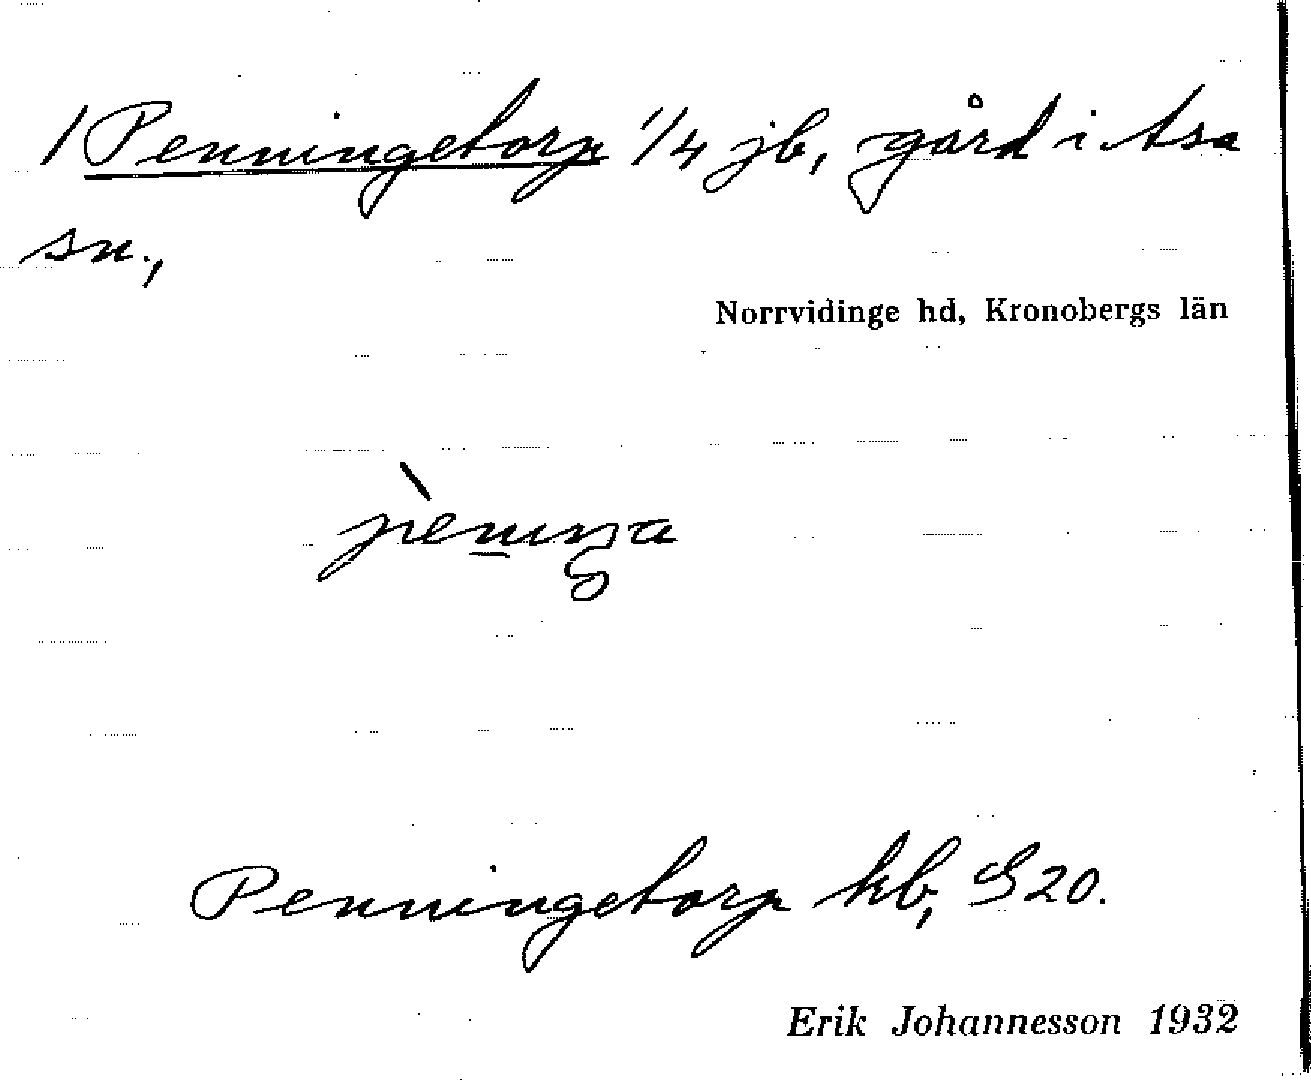 1 Penningetorp 1/4 jb, gård i Asa
sn.,
Norrvidinge hd, Kronobergs län
Penningetorp kb, S20.
Erik Johannesson 1932